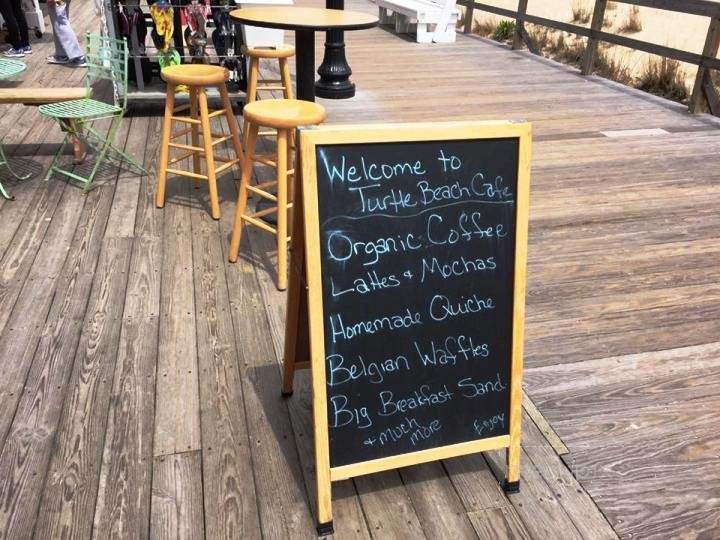 Welcome to
Turtle Beach Cafe
Organic Coffee
Lattes & Mochas
Homemade Quiche
Belgian Waffles
Big Breakfast Sand.
+ much more
Enjoy